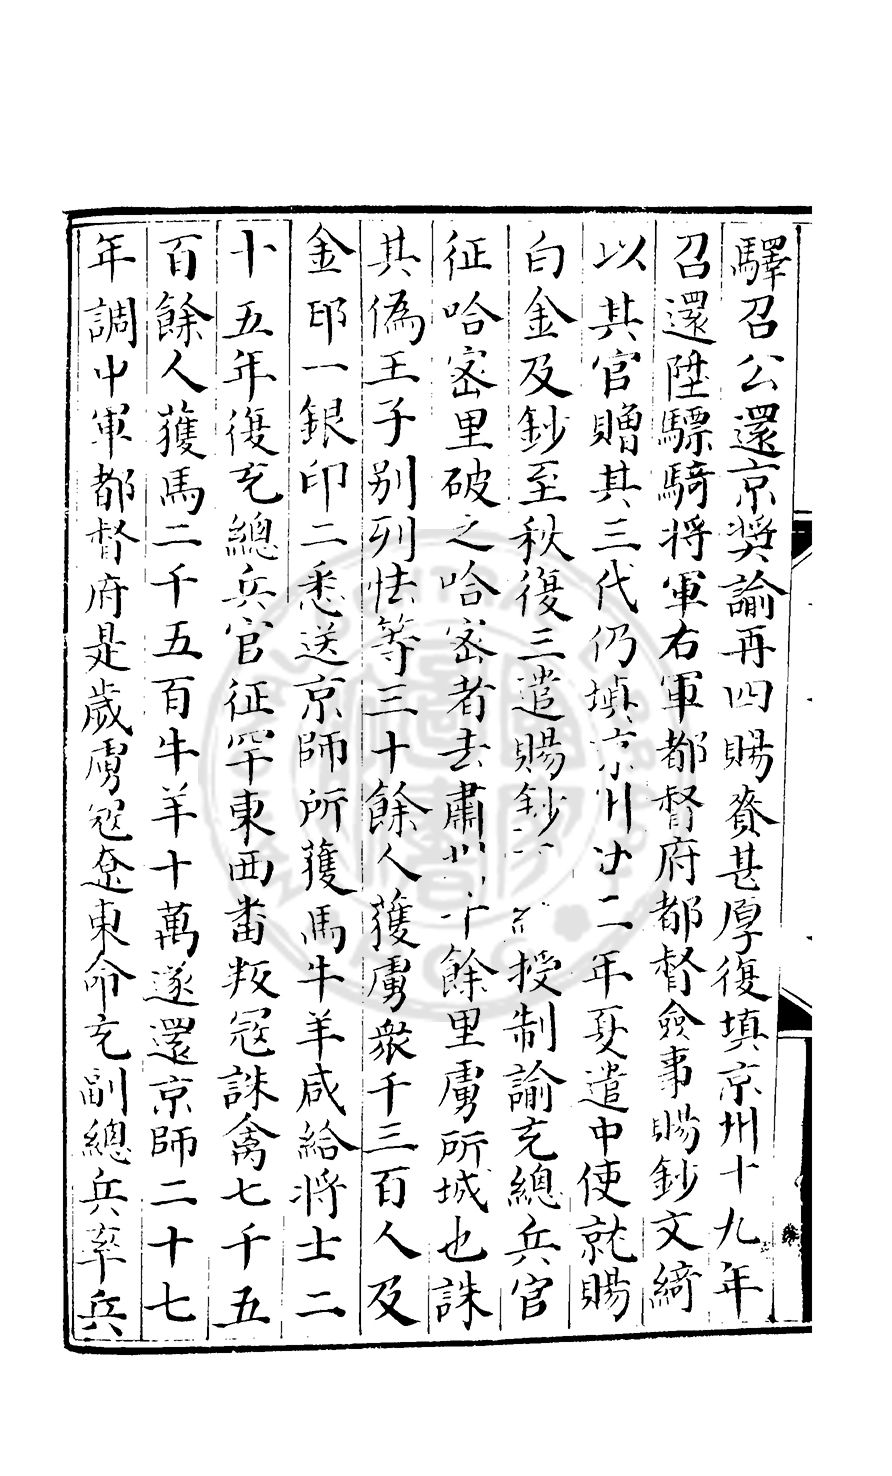 驛召公還京奨諭再四賜賚甚厚復填京州十九年
召還陞驃騎將軍右軍都督府都督僉事賜鈔文綺
以其官贈其三代仍填京州廿二年夏遣中使就賜
白金及鈔至秋復三遣賜鈔 授制諭充總兵官
征哈密里破之哈密者去肅 十餘里虜所城也誅
其偽王子别列怯等三十餘人獲虜衆千三百人及
金印一銀印二悉送京師所獲馬牛羊咸給將士二
十五年復充總兵官征罕東西畨叛冦誅禽七千五
百餘人獲馬二千五百牛羊十萬遂還京師二十七
年調中軍都督府是歳虜冦遼東命充副總兵率兵